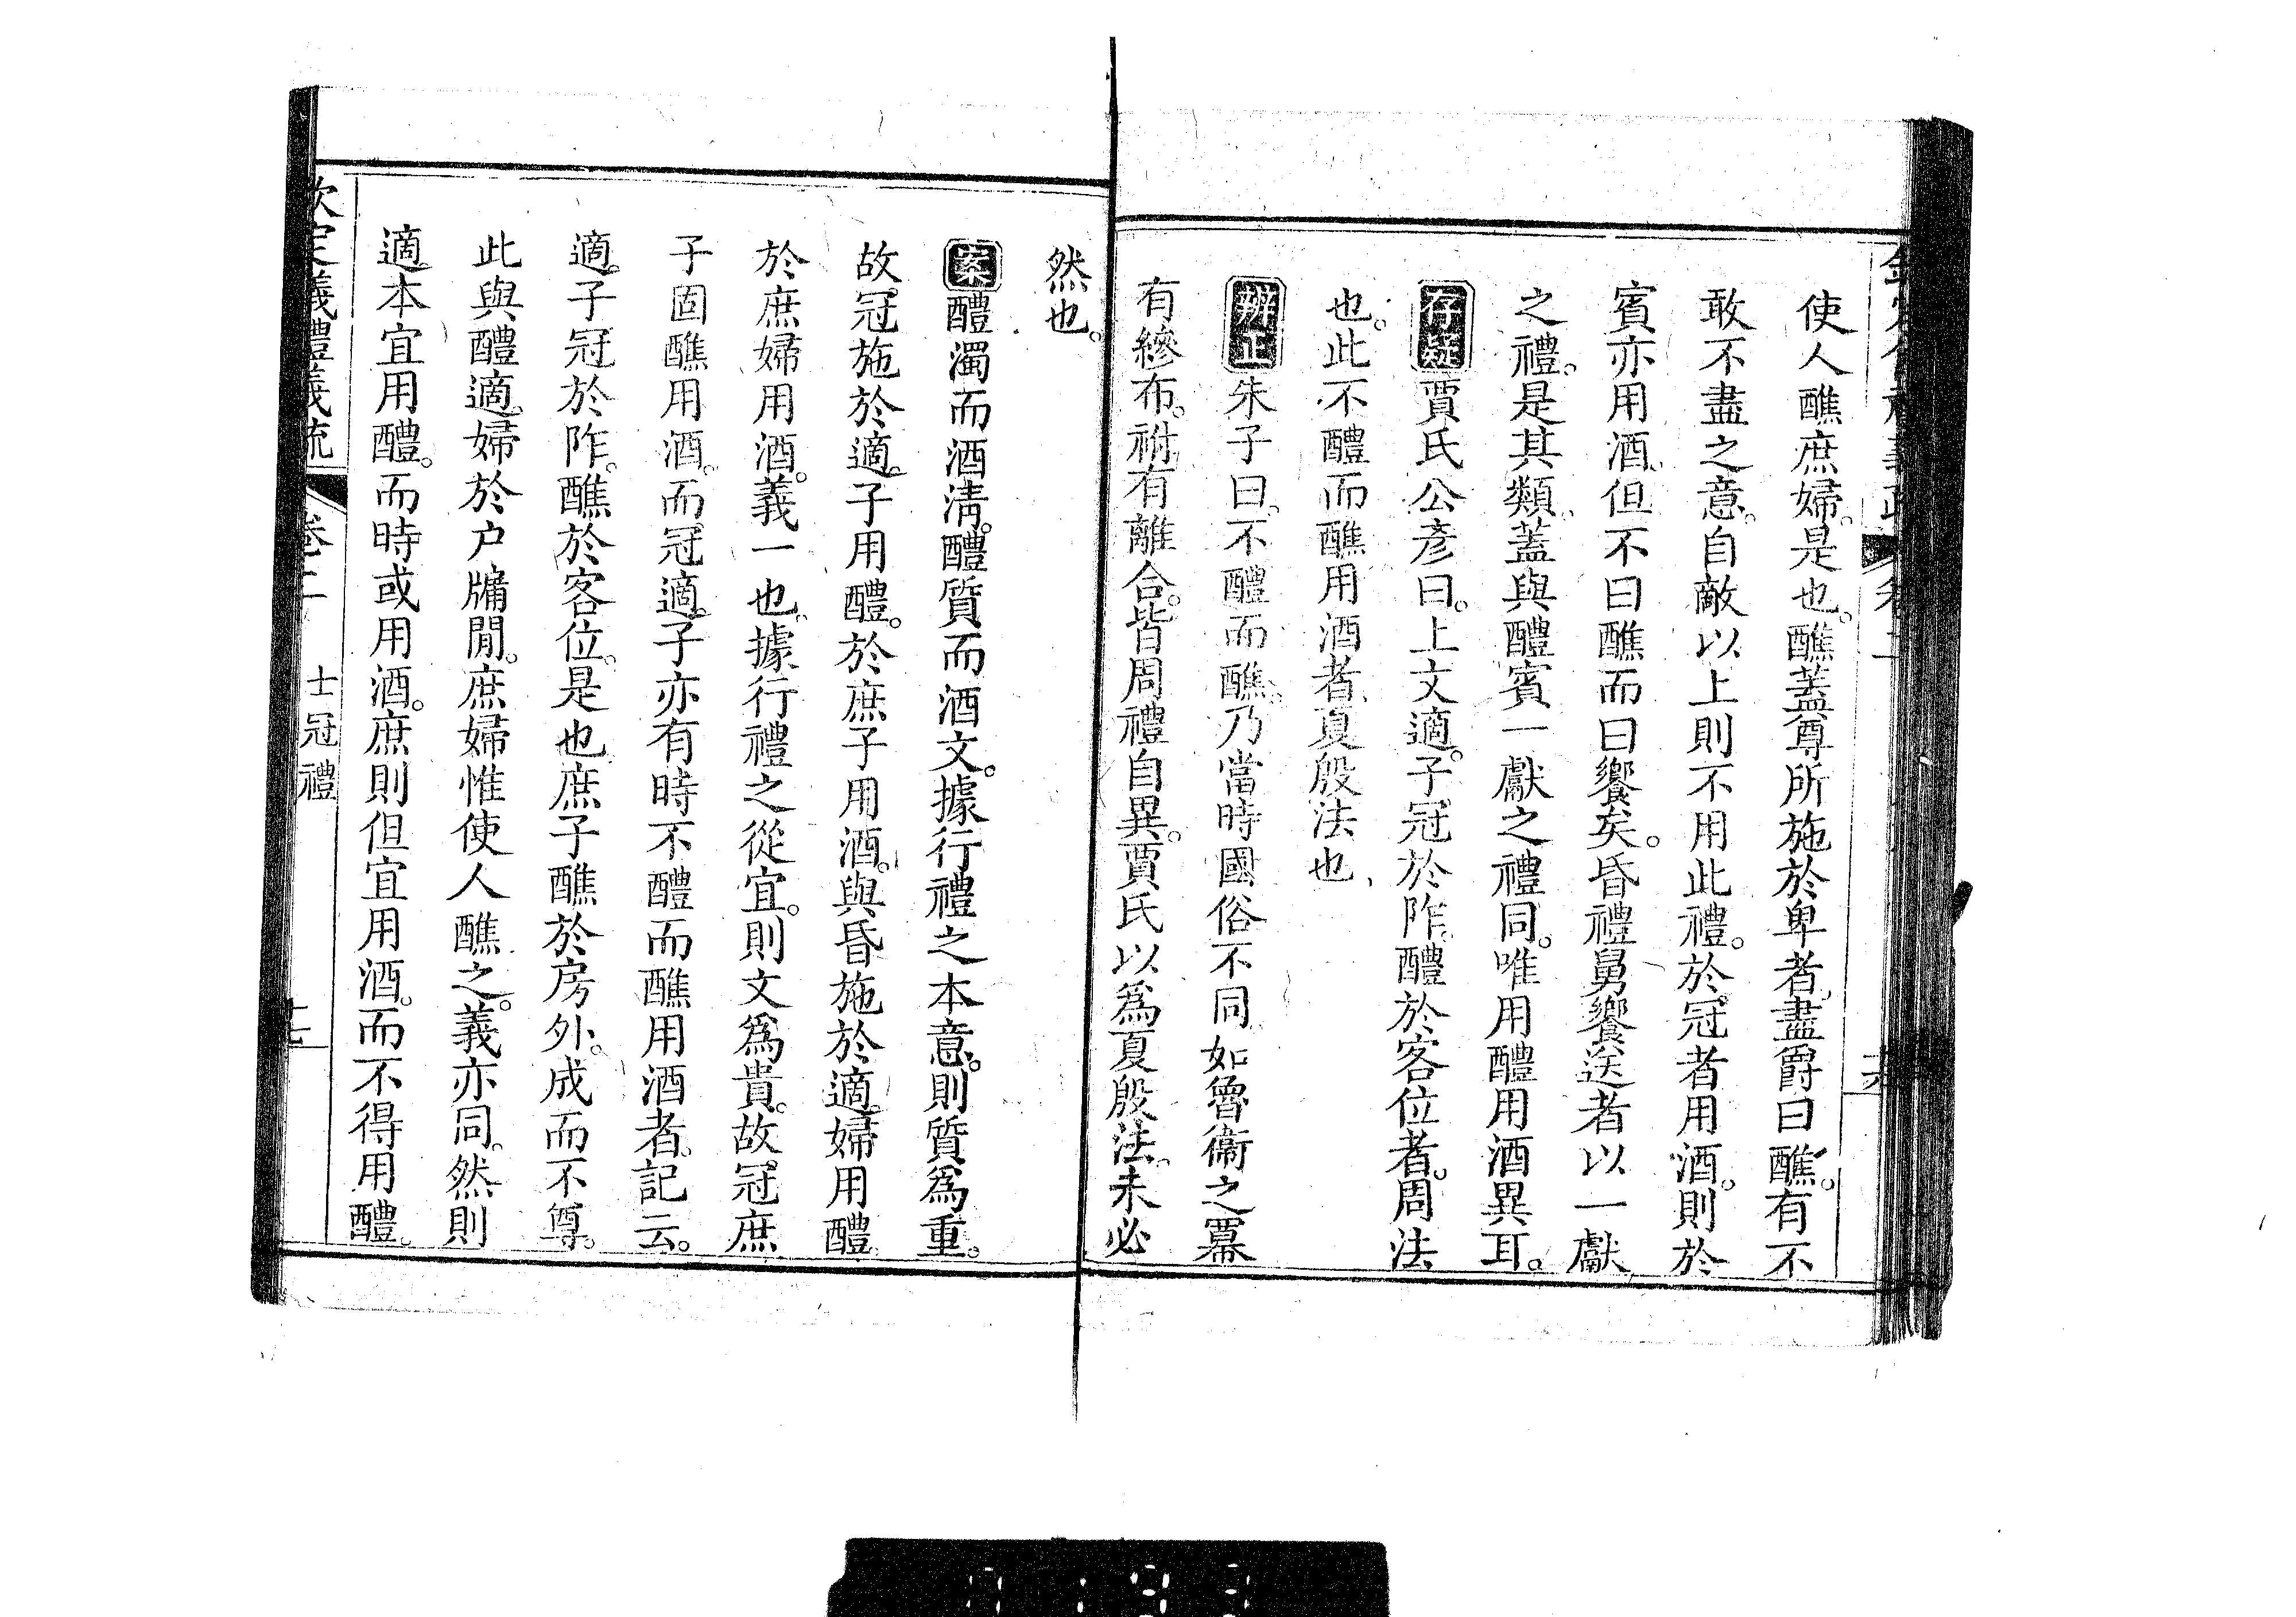 使人醮庶婦。是也。醮蓋尊所施於卑者。盡爵曰醮。有不
敢不盡之意。自敵以上則不用此禮。於冠者用酒。則於
賓亦用酒。但不曰醮而曰饗矣。昏禮舅饗送者以一獻
之禮。是其類。蓋與醴賓一獻之禮同。唯用醴用酒異耳。
存疑賈氏公彥曰。上文適子冠於阼。醴於客位者。周法
也。此不醴而醮用酒者。夏殷法也
辨正朱子曰。不醴而醮。乃當時國俗不同。如魯衞之幕
有縿布。祔有離合。皆周禮自異。賈氏以爲夏殷法。未必
然也。
案醴濁而酒淸。醴質而酒文。據行禮之本意。則質爲重。
故冠施於適子用醴。於庶子用酒。與昏施於適婦用醴
於庶婦用酒。義一也。據行禮之從宜。則文爲貴。故冠庶
子固醮用酒。而冠適子亦有時不醴而醮用酒者。記云。
適子冠於阼。醮於客位。是也。庶子醮於房外。成而不尊。
此與醴適婦於户牖閒。庶婦惟使人醮之。義亦同。然則
適本宜用醴。而時或用酒。庶則但宜用酒。而不得用醴。
欽定義禮義疏 卷二 士冠禮 十七